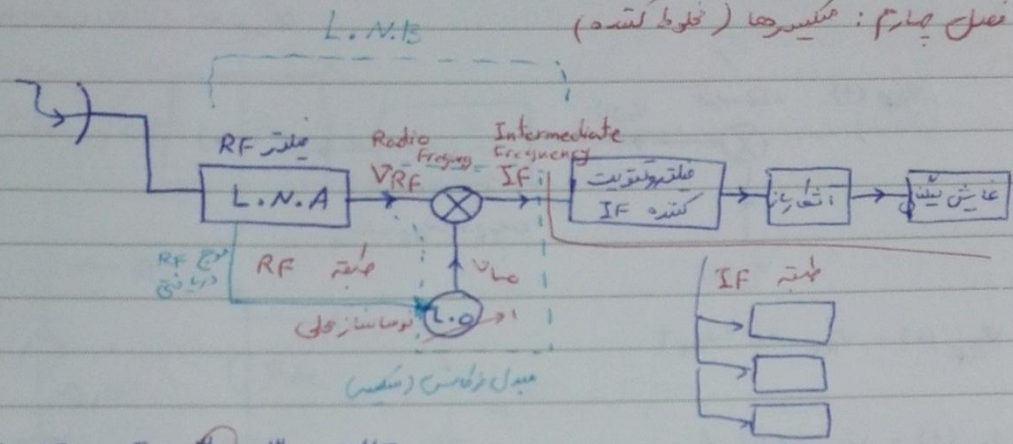 فصل چهارم : میکسرها (مخلوط کننده)
L.N.B
فیلتر RF
L.N.A
Radio Frequency
VRF
Intermediate Frequency
IF
فیلتر و تقویت
کننده IF
آشکارساز
نمایش
موج RF
دریافتی
طبقه RF
VLO
L.O
نوسانساز محلی
مبدل فرکانس (میکسر)
طبقه IF